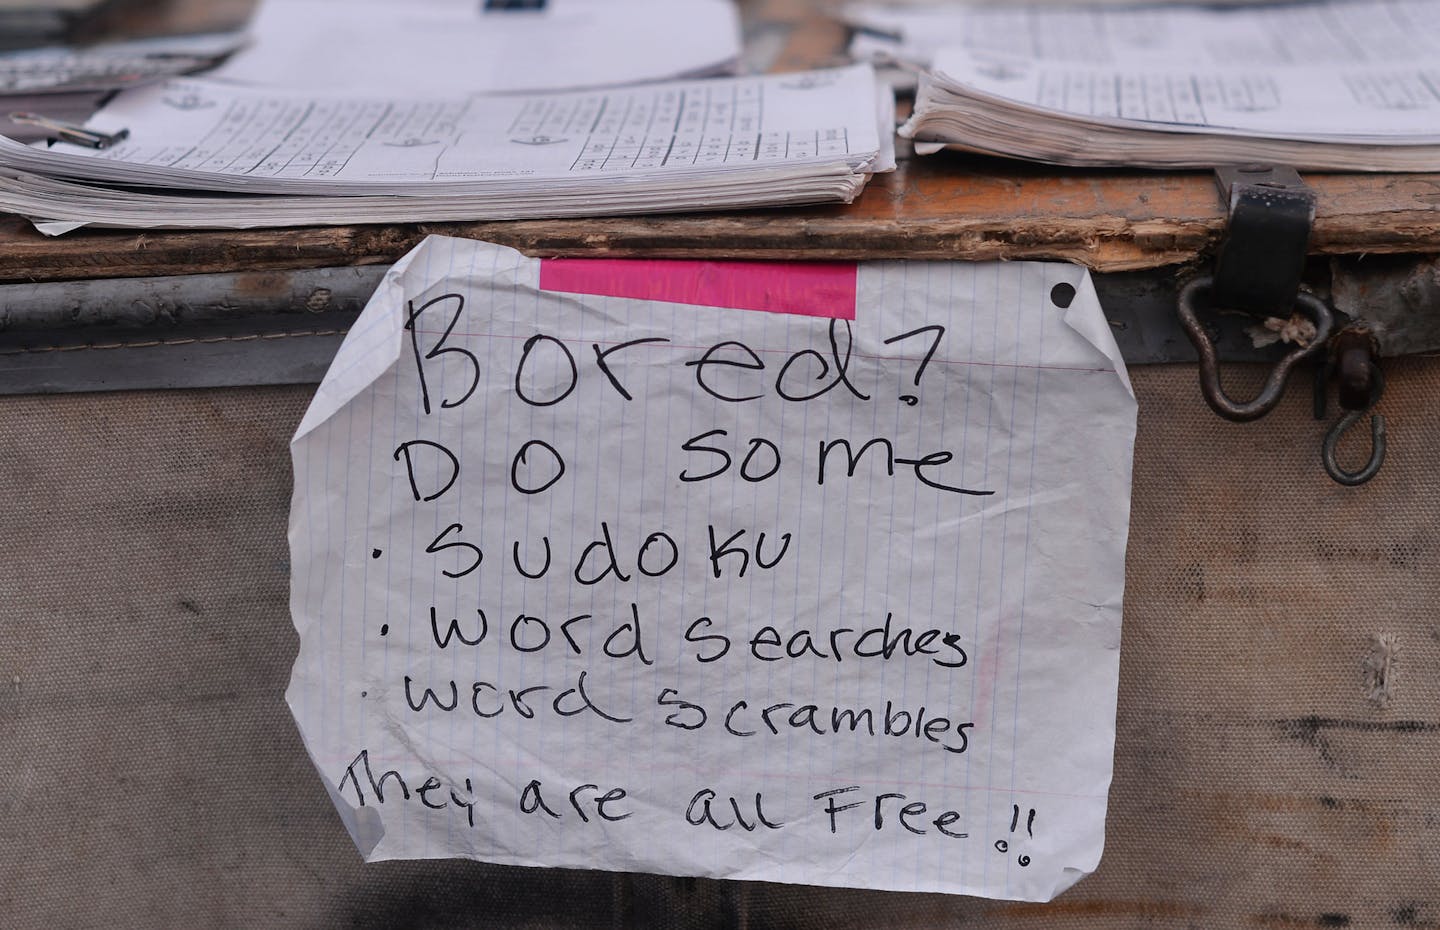 Bored?
Do some
· Sudoku
· Word Searches
· Word Scrambles
They are all Free!!